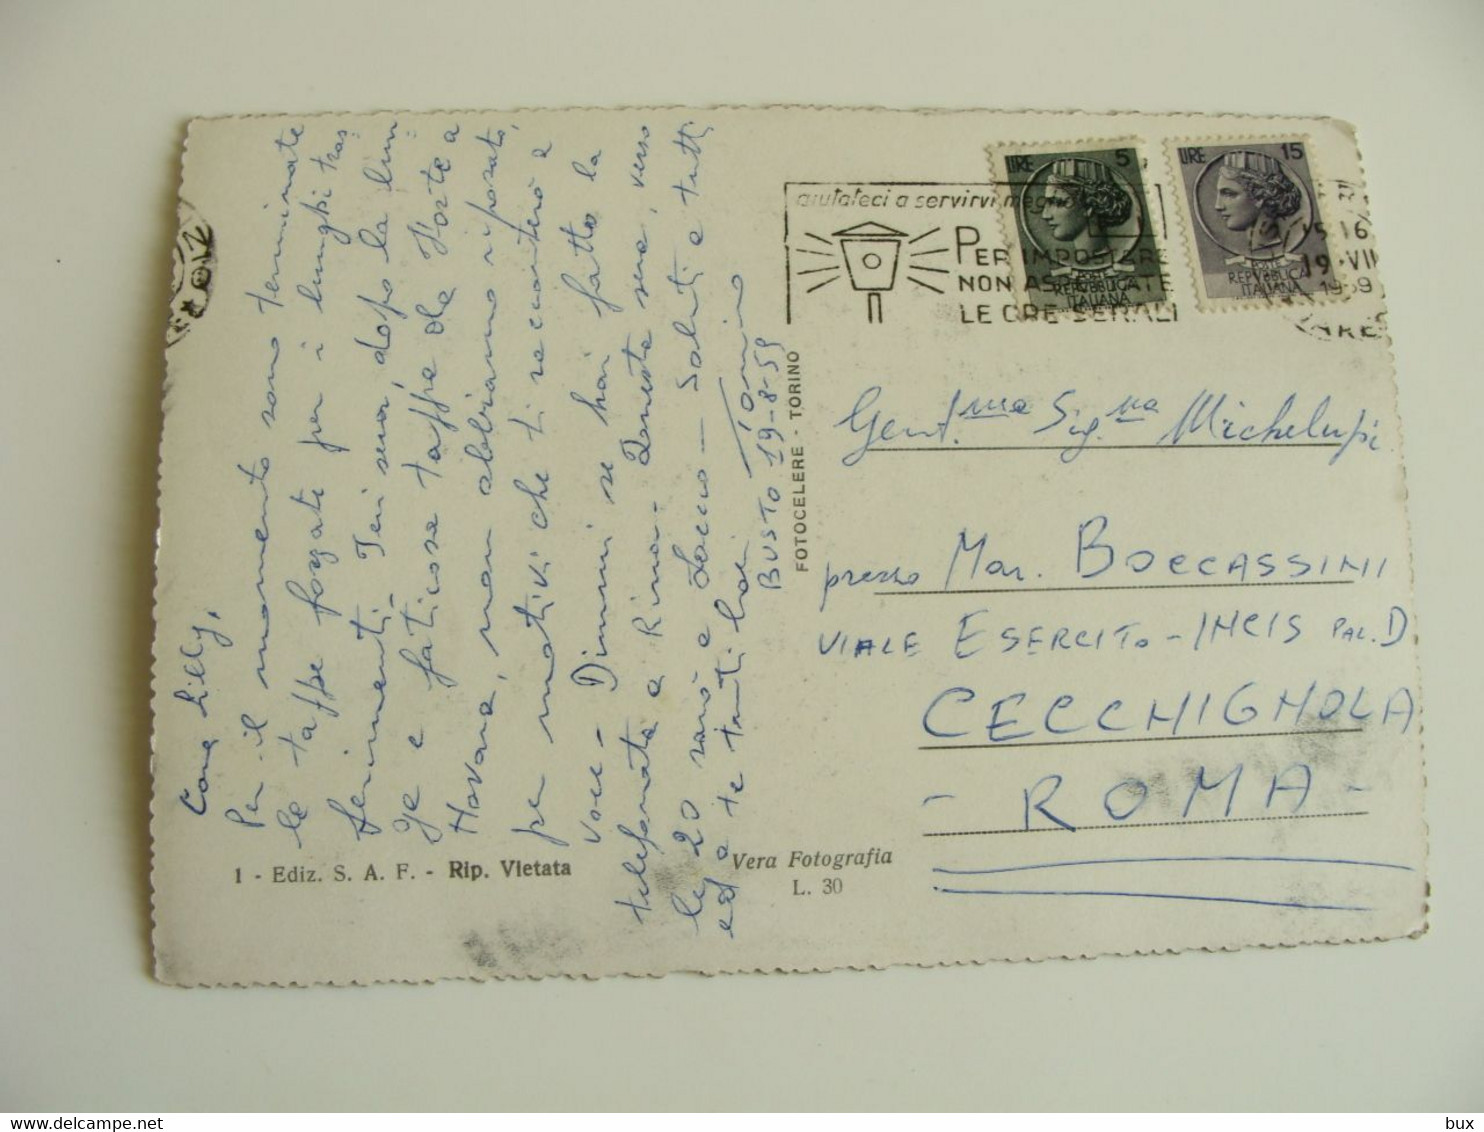 Cara Lilly,
Per il momento sono terminate
le tappe forzate per i lunghi tras=
ferimenti. Ieri sera, dopo la lun=
ga e faticosa tappa da Forte a
Novara, non abbiamo riposato,
per motivi che ti racconterò a
voce - Dimmi se hai fatto la
telefonata a Rina - Questa sera, verso
le 20 sarò a - Saluti a tutti
ed a te tanti baci
Tonino
BUSTO 19-8-59
1 - Ediz. S. A. F. - Rip. Vietata
Vera Fotografia
L. 30
FOTOCELERE - TORINO
aiutateci a servirvi meglio
PER IMPOSTARE
NON ASPETTATE
LE ORE SERALI
LIRE 5
REPVBBLICA
ITALIANA
LIRE 15
POSTE
REPVBBLICA
ITALIANA
15-16
19·VII
1959
Gent.ma Sig.na Michelupi
presso Mar. BOCCASSINI
VIALE ESERCITO - INCIS PAL. D
CECCHIGNOLA
- ROMA -
bux